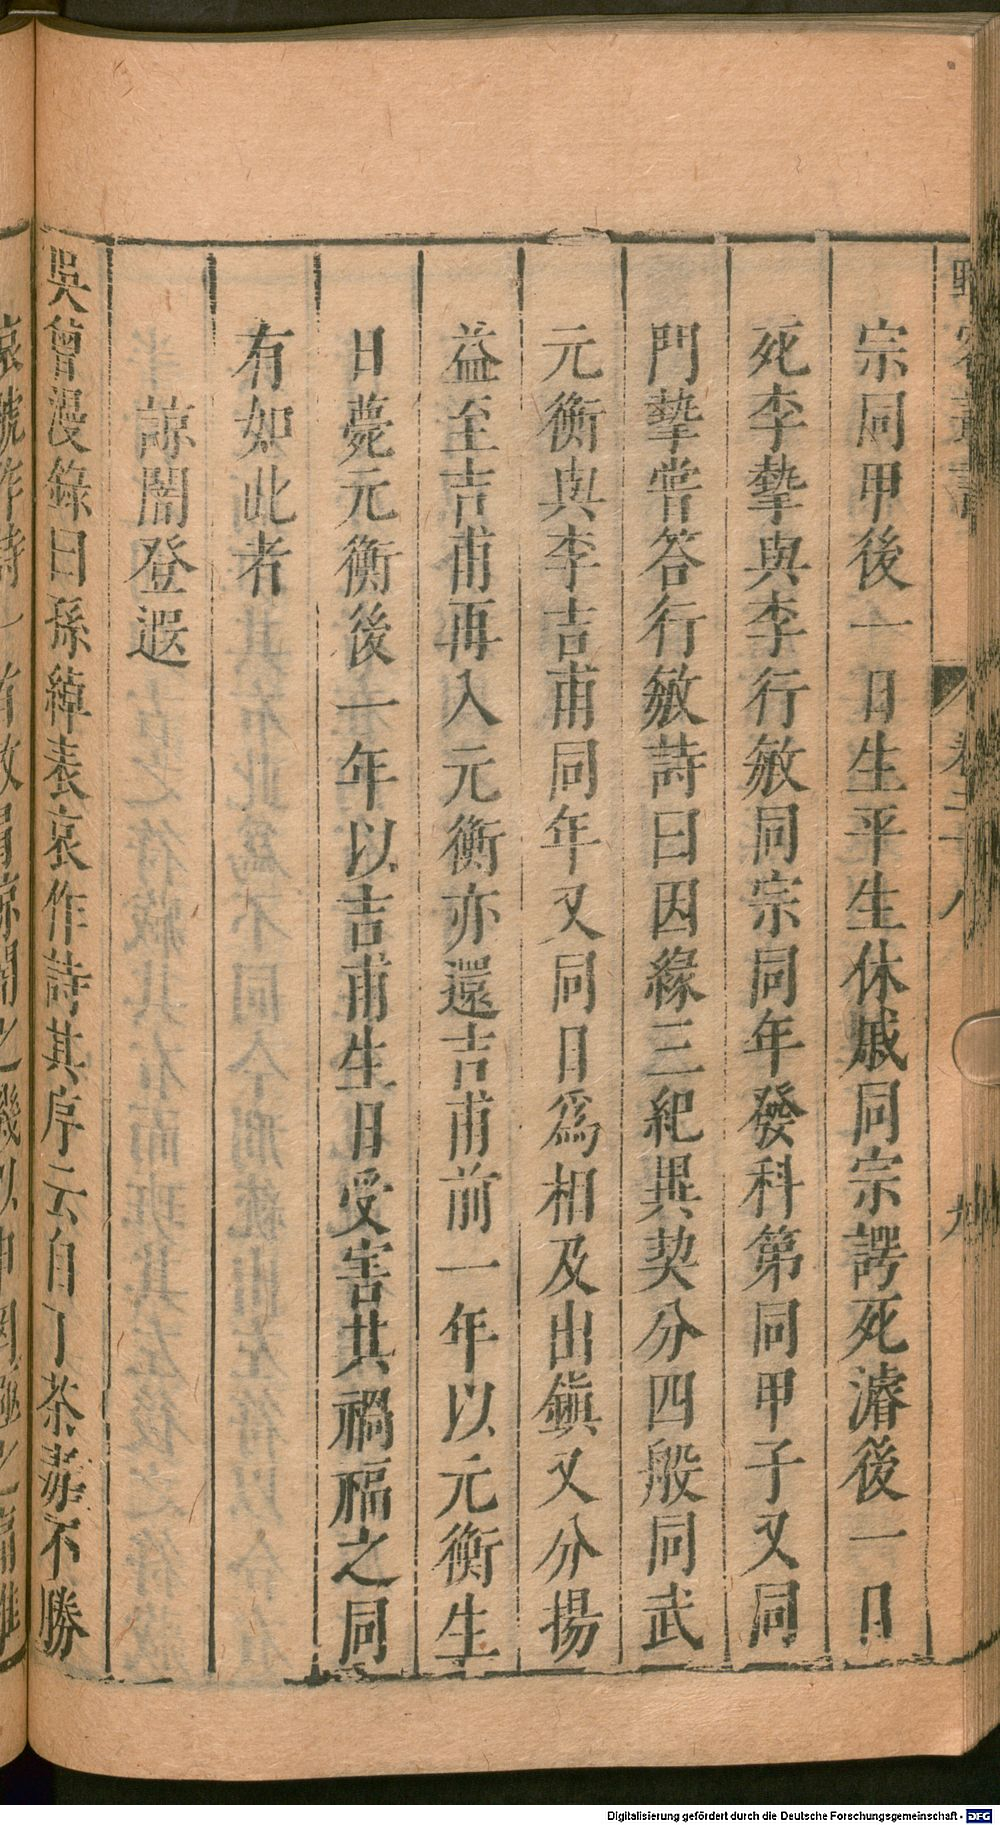 宗同甲後一日生平生休戚同宗諤死濬後一日
死李摯與李行敏同宗同年發科第同甲子又同
門摯嘗答行敏詩曰因緣三紀異契分四般同武
元衡與李吉甫同年又同日為相及出鎮又分揚
益至吉甫再入元衡亦還吉甫前一年以元衡生
日薨元衡後一年以吉甫生日受害其禍福之同
有如此者
諒闇登遐
吳曾漫錄曰孫綽表哀作詩其序云自丁荼毒不勝
Digitalisierung gefördert durch die Deutsche Forschungsgemeinschaft - DFG